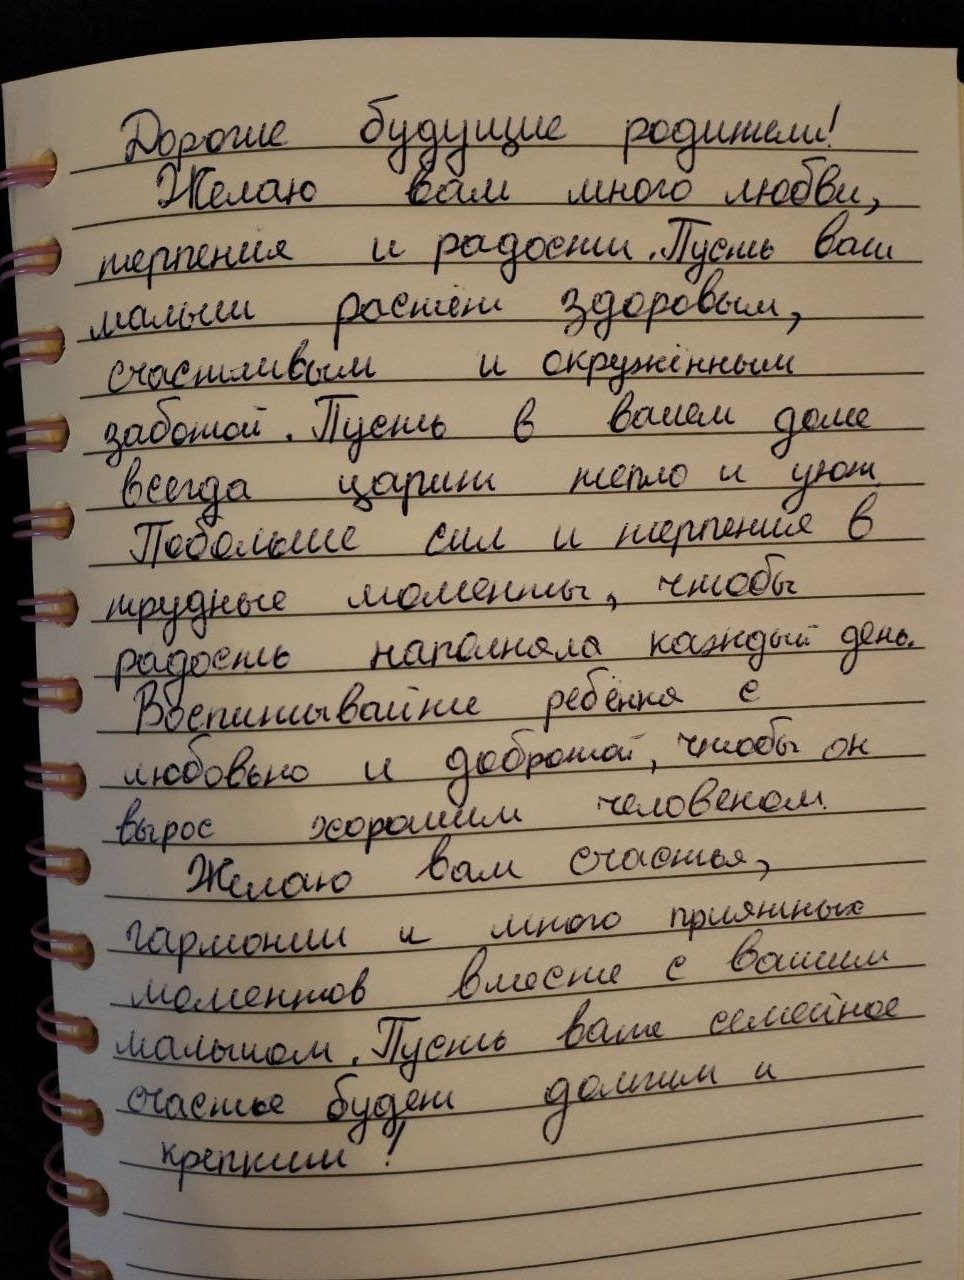 Дорогие будущие родители!
Желаю вам много любви,
терпения и радости. Пусть ваш
малыш растёт здоровым,
счастливым и окружённым
заботой. Пусть в вашем доме
всегда царит тепло и уют
Побольше сил и терпения в
трудные моменты, чтобы
радость наполняла каждый день.
Воспитывайте ребёнка с
любовью и добротой, чтобы он
вырос хорошим человеком.
Желаю вам счастья,
гармонии и много приятных
моментов вместе с вашим
малышом. Пусть ваше семейное
счастье будет долгим и
крепким!